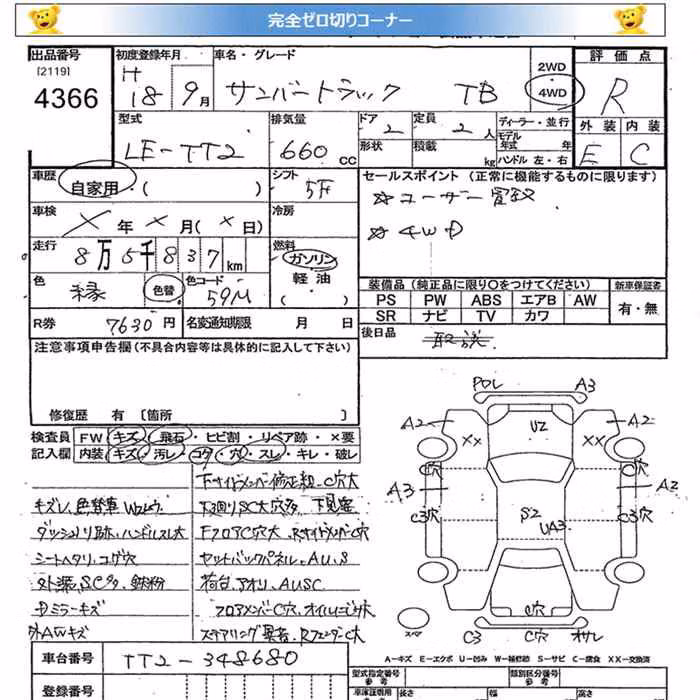 完全ゼロ切りコーナー
出品番号
[2119]
4366
初度登録年月
H
18 9月
車名・グレード
サンバートラック TB
2WD
4WD
評価点
R
型式
LE-TT2
排気量
660 cc
ドア
2
形状
定員
2 人
積載
kg
ディーラー・並行
モデル
年式 年
ハンドル 左・右
外装 内装
E C
車歴
自家用・( )
シフト
5F
セールスポイント(正常に機能するものに限ります)
☆ユーザー買取
☆4WD
車検
× 年 × 月(× 日)
冷房
走行
8万5千837km
燃料
ガソリン
軽油
( )
色
緑
色替
色コード
59M
装備品(純正品に限り○をつけてください)
PS PW ABS エアB AW
SR ナビ TV カワ
新車保証書
有・無
R券 7630円
名変通知期限 月 日
後日品
取説
注意事項申告欄(不具合内容等は具体的に記入して下さい)
修復歴 有 [箇所 ]
検査員
記入欄
FW キズ・飛石・ヒビ割・リペア跡・×要
内装 キズ・汚レ・コゲ・穴・スレ・キレ・破レ
下サイドメンバー修正粗、C穴大
下廻りSC大穴多
ダッシュノリ跡、ハンドルスレ大
FフロアC穴大、RサイドメンバーC穴
シートヘタリ、コゲ穴
セットバックパネル、AU、S
外装、SC多、鉄粉
荷台、アオリ、AUSC
Dミラーキズ
フロアメンバーC穴、オイルニジミ大
外AWキズ
ステアリング異音、RフェンダーC大
車台番号
TT2-348680
登録番号
POL A3
A2 XX UZ XX A2
C穴 C穴
A3 A2
C3穴 S2 UA3 C3穴
C穴
スペア
C3 C穴 オサレ
A-キズ E-エクボ U-凹み W-補修跡 S-サビ C-腐食 XX-交換済
型式指定番号
参考
類別区分番号
参考
車体証明用
参考
長さ
幅
高さ